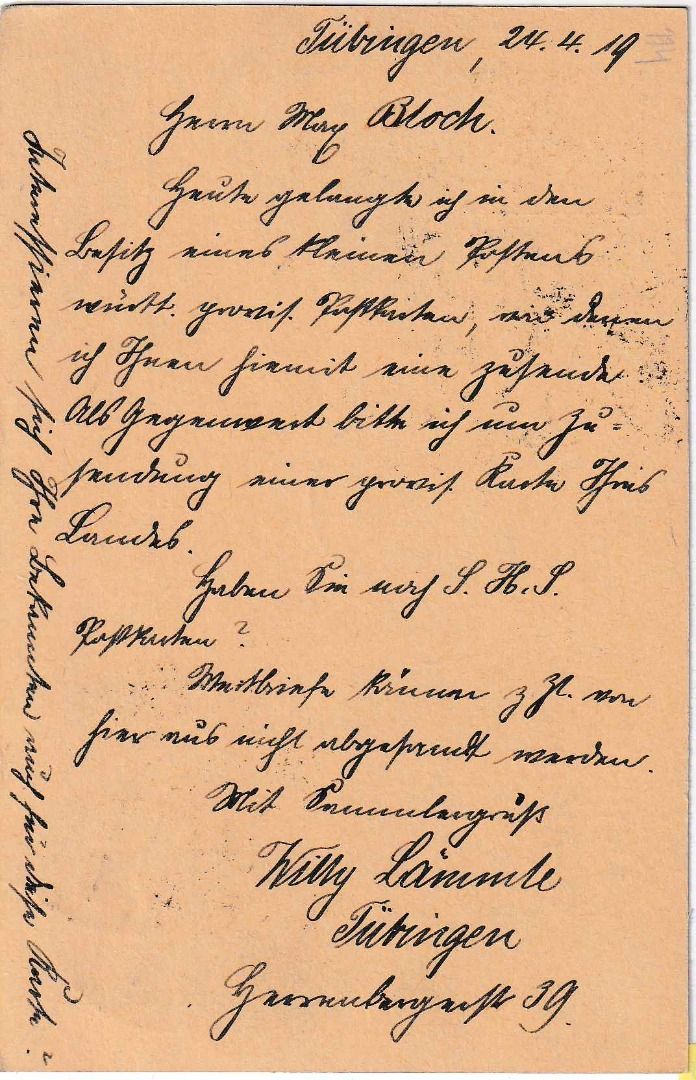 Tübingen, 24.4.19
Herrn Max Bloch.
Heute gelangte ich in den
Besitz eines kleinen Postens
württ. provis. Postkarten, von denen
ich Ihnen hiemit eine zusende.
Als Gegenwert bitte ich um Zu=
sendung einer provis. Karte Ihres
Landes.
Haben Sie noch S. H. S.
Postkarten?
Wertbriefe können z Zt. von
hier aus nicht abgesandt werden.
Mit Sammlergruß
Willy Lämmle
Tübingen
Herrenbergerstr 39.
Interessieren sich Ihre Bekannten auch für diese Karte?